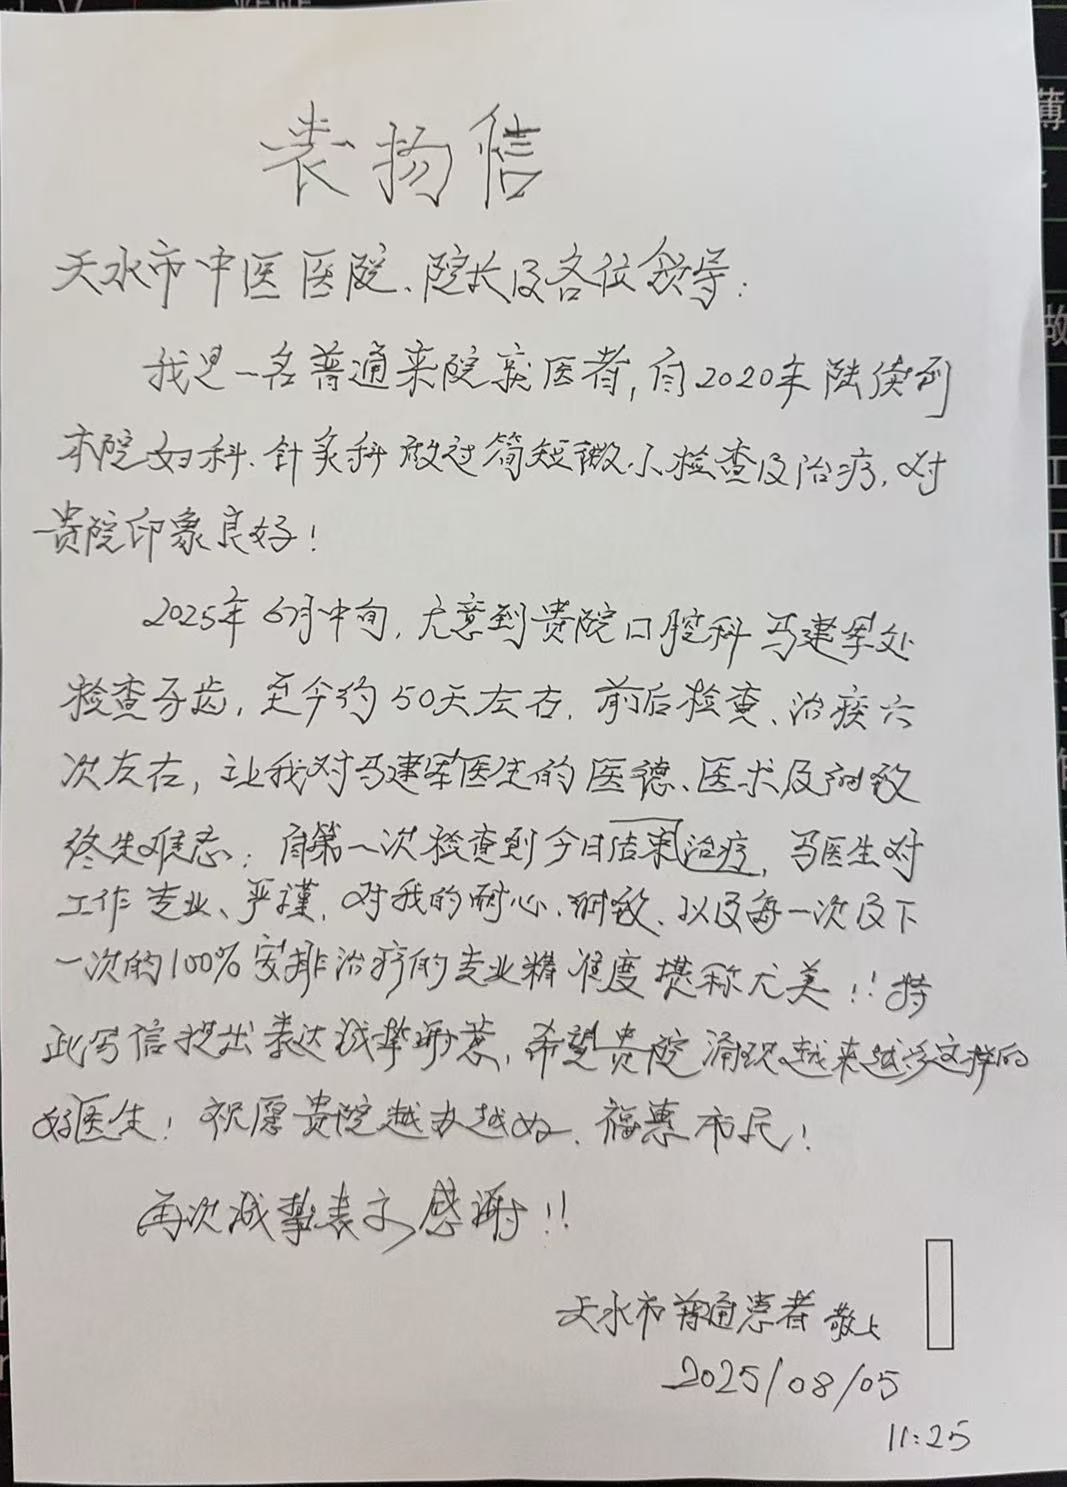 表扬信
天水市中医医院、院长及各位领导:
我是一名普通来院就医者,自2020年陆续到
本院妇科、针灸科做过简短微小检查及治疗,对
贵院印象良好!
2025年6月中旬,无意到贵院口腔科马建军处
检查牙齿,至今约50天左右,前后检查、治疾六
次左右,让我对马建军医生的医德、医术及细致
终生难忘;自第一次检查到今日结束治疗,马医生对
工作专业、严谨,对我的耐心、细致、以及每一次及下
一次的100%安排治疗的专业精准度堪称尤美!!特
此写信提出表达诚挚谢意,希望贵院涌现越来越多这样的
好医生!祝愿贵院越办越好、福惠市民!
再次诚挚表示感谢!!
天水市普通患者 敬上
2025/08/05
11:25
薄
故